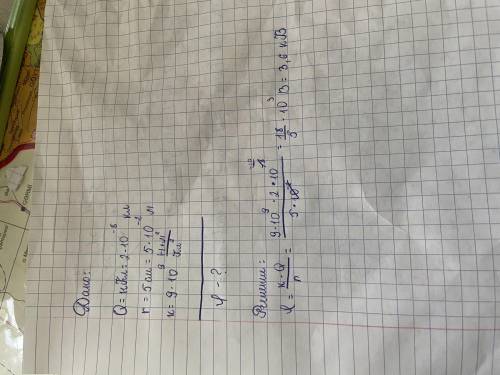 Дано:
r = 5 см = 5·10⁻² м
k = 9·10⁹ Н·м²/Кл²
φ - ?
Решение:
φ = k·Q/r = 9·10⁹·2·10 / 5·10 = 18/5 · 10³ В = 3,6 кВ